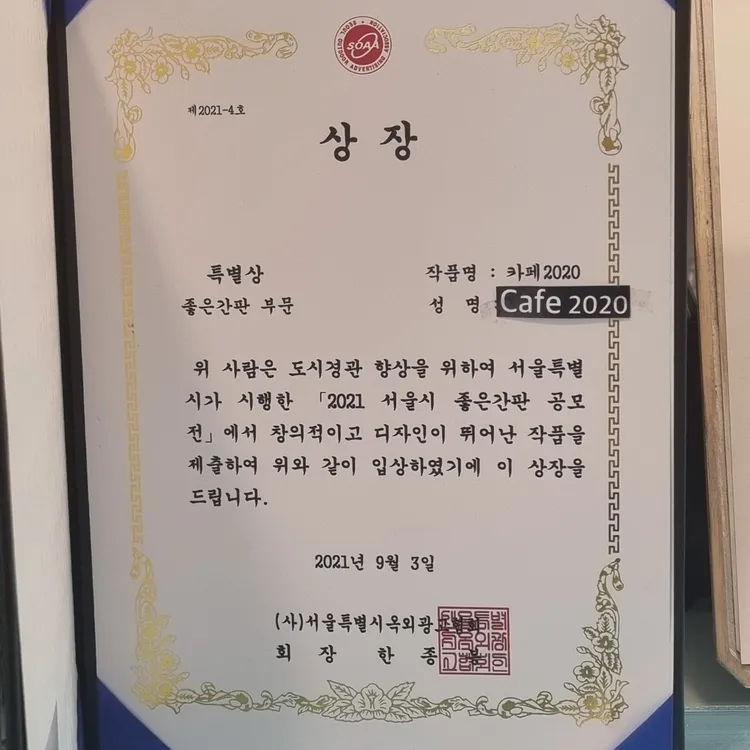 SEOUL OUTDOOR ADVERTISING ASSOCIATION
SOAA
제2021-4호
상 장
특별상
작품명 : 카페2020
좋은간판 부문
성 명 : Cafe 2020
위 사람은 도시경관 향상을 위하여 서울특별
시가 시행한 「2021 서울시 좋은간판 공모
전」에서 창의적이고 디자인이 뛰어난 작품을
제출하여 위와 같이 입상하였기에 이 상장을
드립니다.
2021년 9월 3일
(사)서울특별시옥외광고협회
회 장 한 종